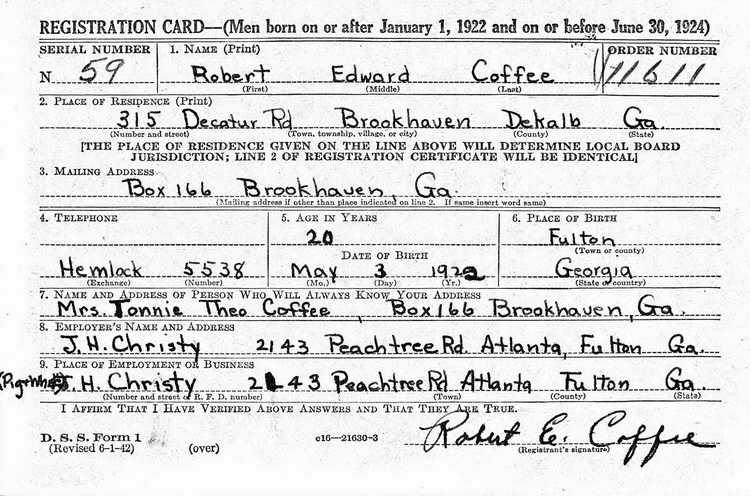 REGISTRATION CARD—(Men born on or after January 1, 1922 and on or before June 30, 1924)
SERIAL NUMBER 1. NAME (Print) ORDER NUMBER
N 59 Robert Edward Coffee 11611
(First) (Middle) (Last)
2. PLACE OF RESIDENCE (Print)
315 Decatur Rd Brookhaven Dekalb Ga.
(Number and street) (Town, township, village, or city) (County) (State)
[THE PLACE OF RESIDENCE GIVEN ON THE LINE ABOVE WILL DETERMINE LOCAL BOARD
JURISDICTION; LINE 2 OF REGISTRATION CERTIFICATE WILL BE IDENTICAL]
3. MAILING ADDRESS
Box 166 Brookhaven, Ga.
(Mailing address if other than place indicated on line 2. If same insert word same)
4. TELEPHONE 5. AGE IN YEARS 6. PLACE OF BIRTH
20 Fulton
(Town or county)
DATE OF BIRTH
Hemlock 5538 May 3 1922 Georgia
(Exchange) (Number) (Mo.) (Day) (Yr.) (State or country)
7. NAME AND ADDRESS OF PERSON WHO WILL ALWAYS KNOW YOUR ADDRESS
Mrs. Tonnie Theo Coffee, Box 166 Brookhaven, Ga.
8. EMPLOYER'S NAME AND ADDRESS
J. H. Christy 2143 Peachtree Rd. Atlanta, Fulton Ga.
9. PLACE OF EMPLOYMENT OR BUSINESS
J. H. Christy 2143 Peachtree Rd Atlanta Fulton Ga.
(Number and street or R. F. D. number) (Town) (County) (State)
I AFFIRM THAT I HAVE VERIFIED ABOVE ANSWERS AND THAT THEY ARE TRUE.
D. S. S. Form 1 Robert E. Coffee
(Revised 6-1-42) (over) c16—21630-3 (Registrant's signature)